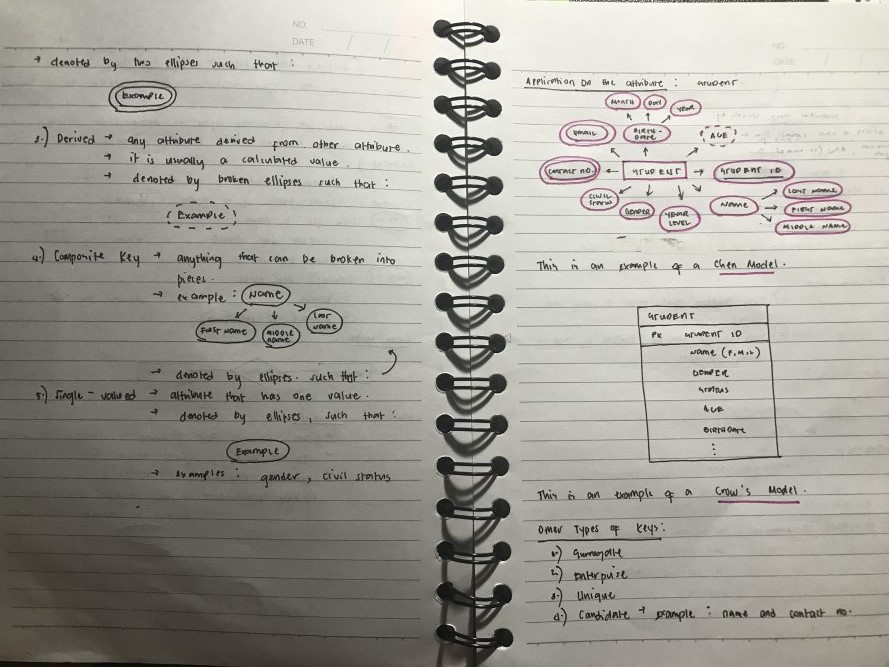 NO.
DATE / /
→ denoted by two ellipses such that :
Example
3.) Derived → any attribute derived from other attribute.
→ it is usually a calculated value.
→ denoted by broken ellipses such that :
Example
4.) Composite Key → anything that can be broken into
pieces.
→ example : Name
First Name
Middle Name
Last Name
→ denoted by ellipses. such that :
5.) Single-valued → attribute that has one value.
→ denoted by ellipses, such that :
Example
→ examples : gender, civil status
NO.
DATE
Application on the attribute : student
MONTH DAY YEAR
EMAIL BIRTH-DATE AGE
CONTACT NO. STUDENT STUDENT ID
CIVIL STATUS GENDER YEAR LEVEL NAME LAST NAME
FIRST NAME
MIDDLE NAME
This is an example of a Chen Model.
STUDENT
PK STUDENT ID
NAME (F, M, L)
GENDER
STATUS
AGE
BIRTHDATE
⋮
This is an example of a Crow's Model.
Other Types of Keys:
1.) Surrogate
2.) Enterprise
3.) Unique
4.) Candidate → example : name and contact no.